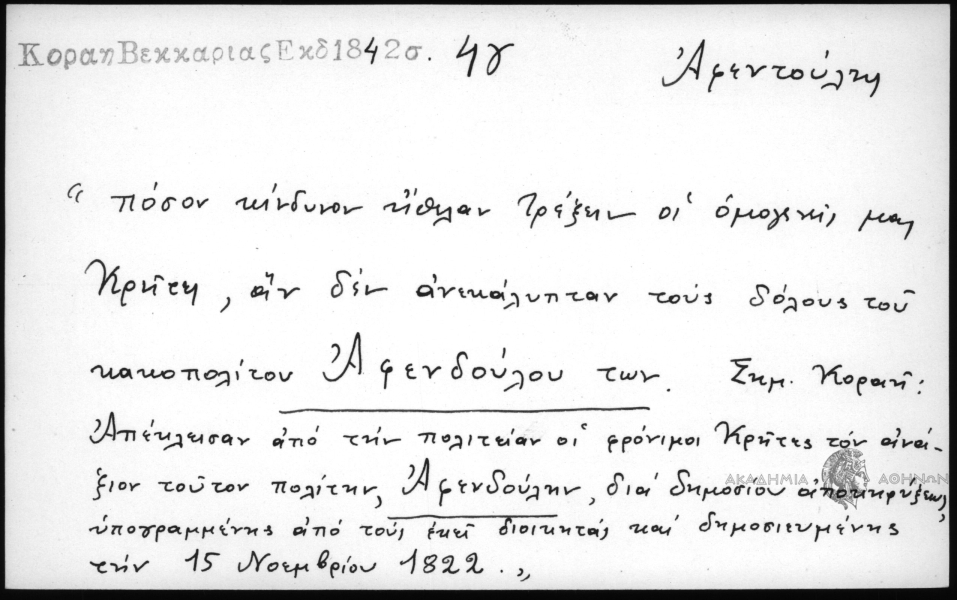 Κοραη Βεκκαριας Εκδ 1842 σ. 4γ
Ἀφεντούλης
“ πόσον κίνδυνον ἤθελαν τρέξειν οἱ ὁμογενεῖς μας
Κρῆτες, ἂν δὲν ἀνεκάλυπταν τοὺς δόλους τοῦ
κακοπολίτου Ἀφενδούλου των. Σημ. Κοραῆ:
Ἀπέκλεισαν ἀπό τήν πολιτείαν οἱ φρόνιμοι Κρῆτες τόν ἀνά-
ξιον τοῦτον πολίτην, Ἀφενδούλην, διά δημοσίου ἀποκηρύξεως,
ὑπογραμμένης ἀπό τούς ἐκεῖ διοικητάς καί δημοσιευμένης
τήν 15 Νοεμβρίου 1822. „
ΑΚΑΔΗΜΙΑ ΑΘΗΝΩΝ